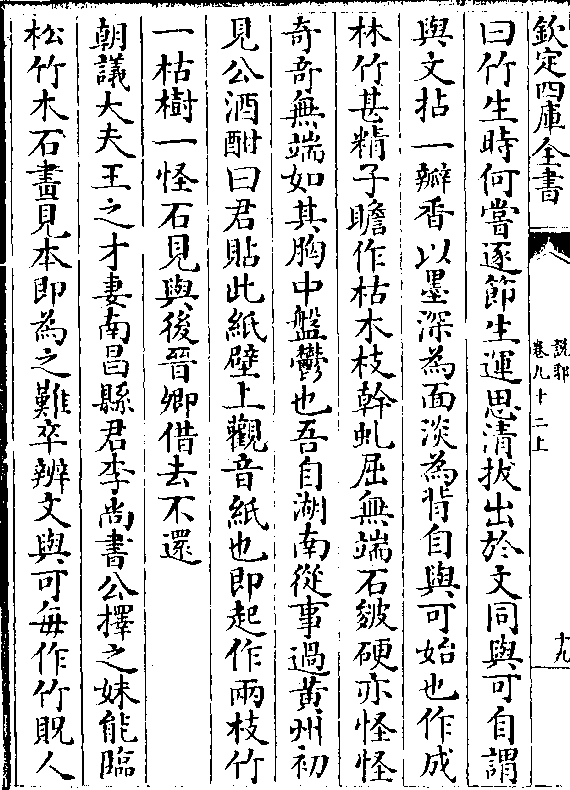 欽定四庫全書
說郛
卷九十二上
十九
曰竹生時何嘗逐節生運思清拔出於文同與可自謂
與文拈一瓣香以墨深為面淡為背自與可始也作成
林竹甚精子瞻作枯木枝幹虬屈無端石皴硬亦怪怪
奇奇無端如其胸中盤鬱也吾自湖南從事過黃州初
見公酒酣曰君貼此紙壁上觀音紙也即起作兩枝竹
一枯樹一怪石見與後晉卿借去不還
朝議大夫王之才妻南昌縣君李尚書公擇之妹能臨
松竹木石畫見本即為之難卒辨文與可每作竹貺人